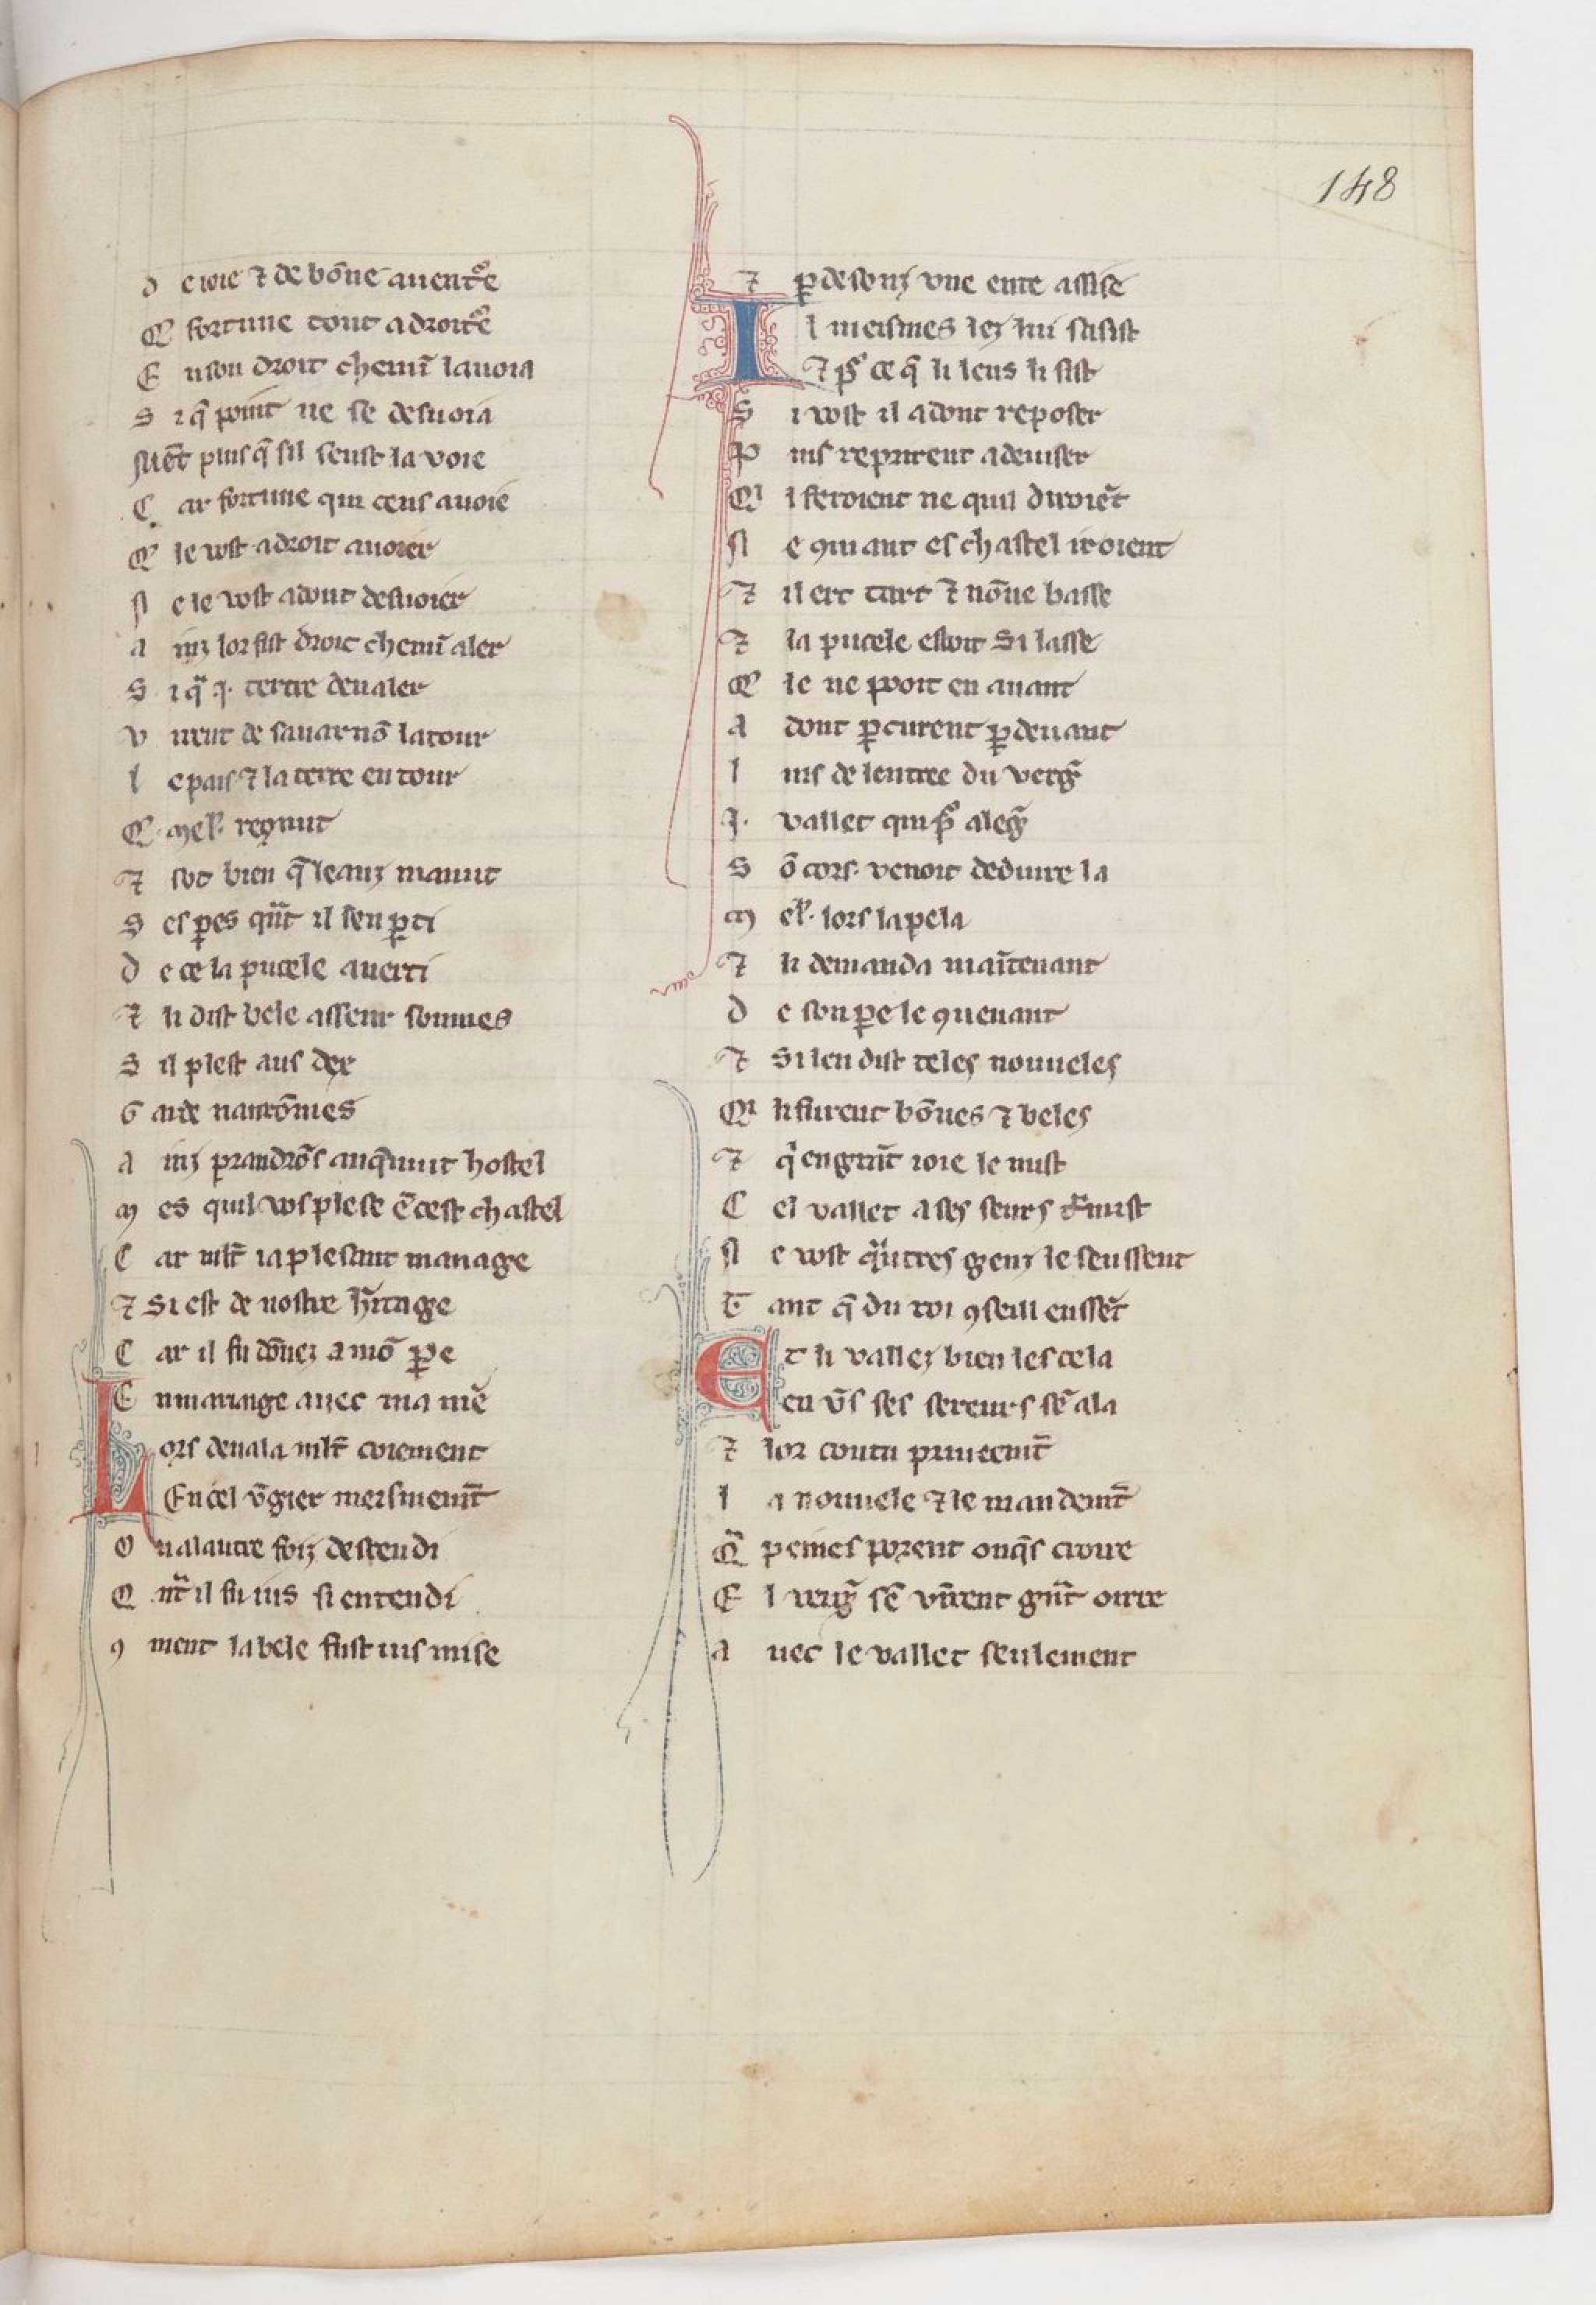 148
d e ioie ⁊ de bõne auentᵒe
Q fortune tout adroitᵒe
E nson droit chemĩ lauoia
S i q̃ point ne se desuoia
Niẽt plus q̃ sil seust la voie
C ar fortune qui ceus auoie
Q le vost adroit auoier
N e le vost adont desuoier
a inz lor fist droit chemĩ aler
S i qᵃ .j. tertre deualer
v irent de sauarnõ la tour
l e pais ⁊ la terre entour
Q mel'. reꝯnut
⁊ sot bien q̃ leanz manut
S es ꝑes qᵃnt il sen ꝑti
d e ce la pucele auerti
⁊ li dist bele asseur sommes
S il plest aus dex
G arde naurõmes
a inz prandrõs anq̃nuit hostel
m es quil vos plese ẽ cest chastel
C ar mlt̃ i a plesant manage
⁊ Si est de nostre h̃itage
C ar il fu dõnez a mõ ꝑe
E nmariage auec ma me᷑
L ors deuala mlt̃ coiement
En cel v̾gier meismemẽt
O u alautre foiz descendi
Q nᵃt il fu ius si entendi
ꝯ ment la bele fust ius mise
⁊ ꝑ desouz vne ente assise
I l meismes lez lui sasist
⁊ pᵒ ce q̃ li leus li sist
S i vost il adont reposer
P uis repriᵉrent a deuiser
Qⁱ l feroient ne quil diroiẽt
N e ꝯmant el chastel iroient
⁊ il ert tart ⁊ nõne basse
⁊ la pucele estoit Si lasse
Q le ne pooit en auant
a dont ꝑcurent ꝑ deuant
l uis de lentree du verg̾
.J. vallet qui pᵒ aleg̾
S õ cors. venoit deduire la
m el'. lors lapela
⁊ li demanda maĩtenant
d e son ꝑe le ꝯuenant
⁊ Si len dist teles nouueles
Qⁱ li furent bõnes ⁊ beles
⁊ qⁱ en grãt ioie le mist
C el vallet a ses seurs tᵃmist
N e vost qᵃutres genz le seussent
T ant q̃ du roi ꝯseill eussẽt
E t li vallez bien les cela
en v̾s ses sereurs sẽ ala
⁊ lor conta priueemẽt
l a nouuele ⁊ le mandemẽt
Qᵃ peines porent onq̃s croire
E l verg̾ sẽ vĩrent grãt oirre
a uec le vallet seulement